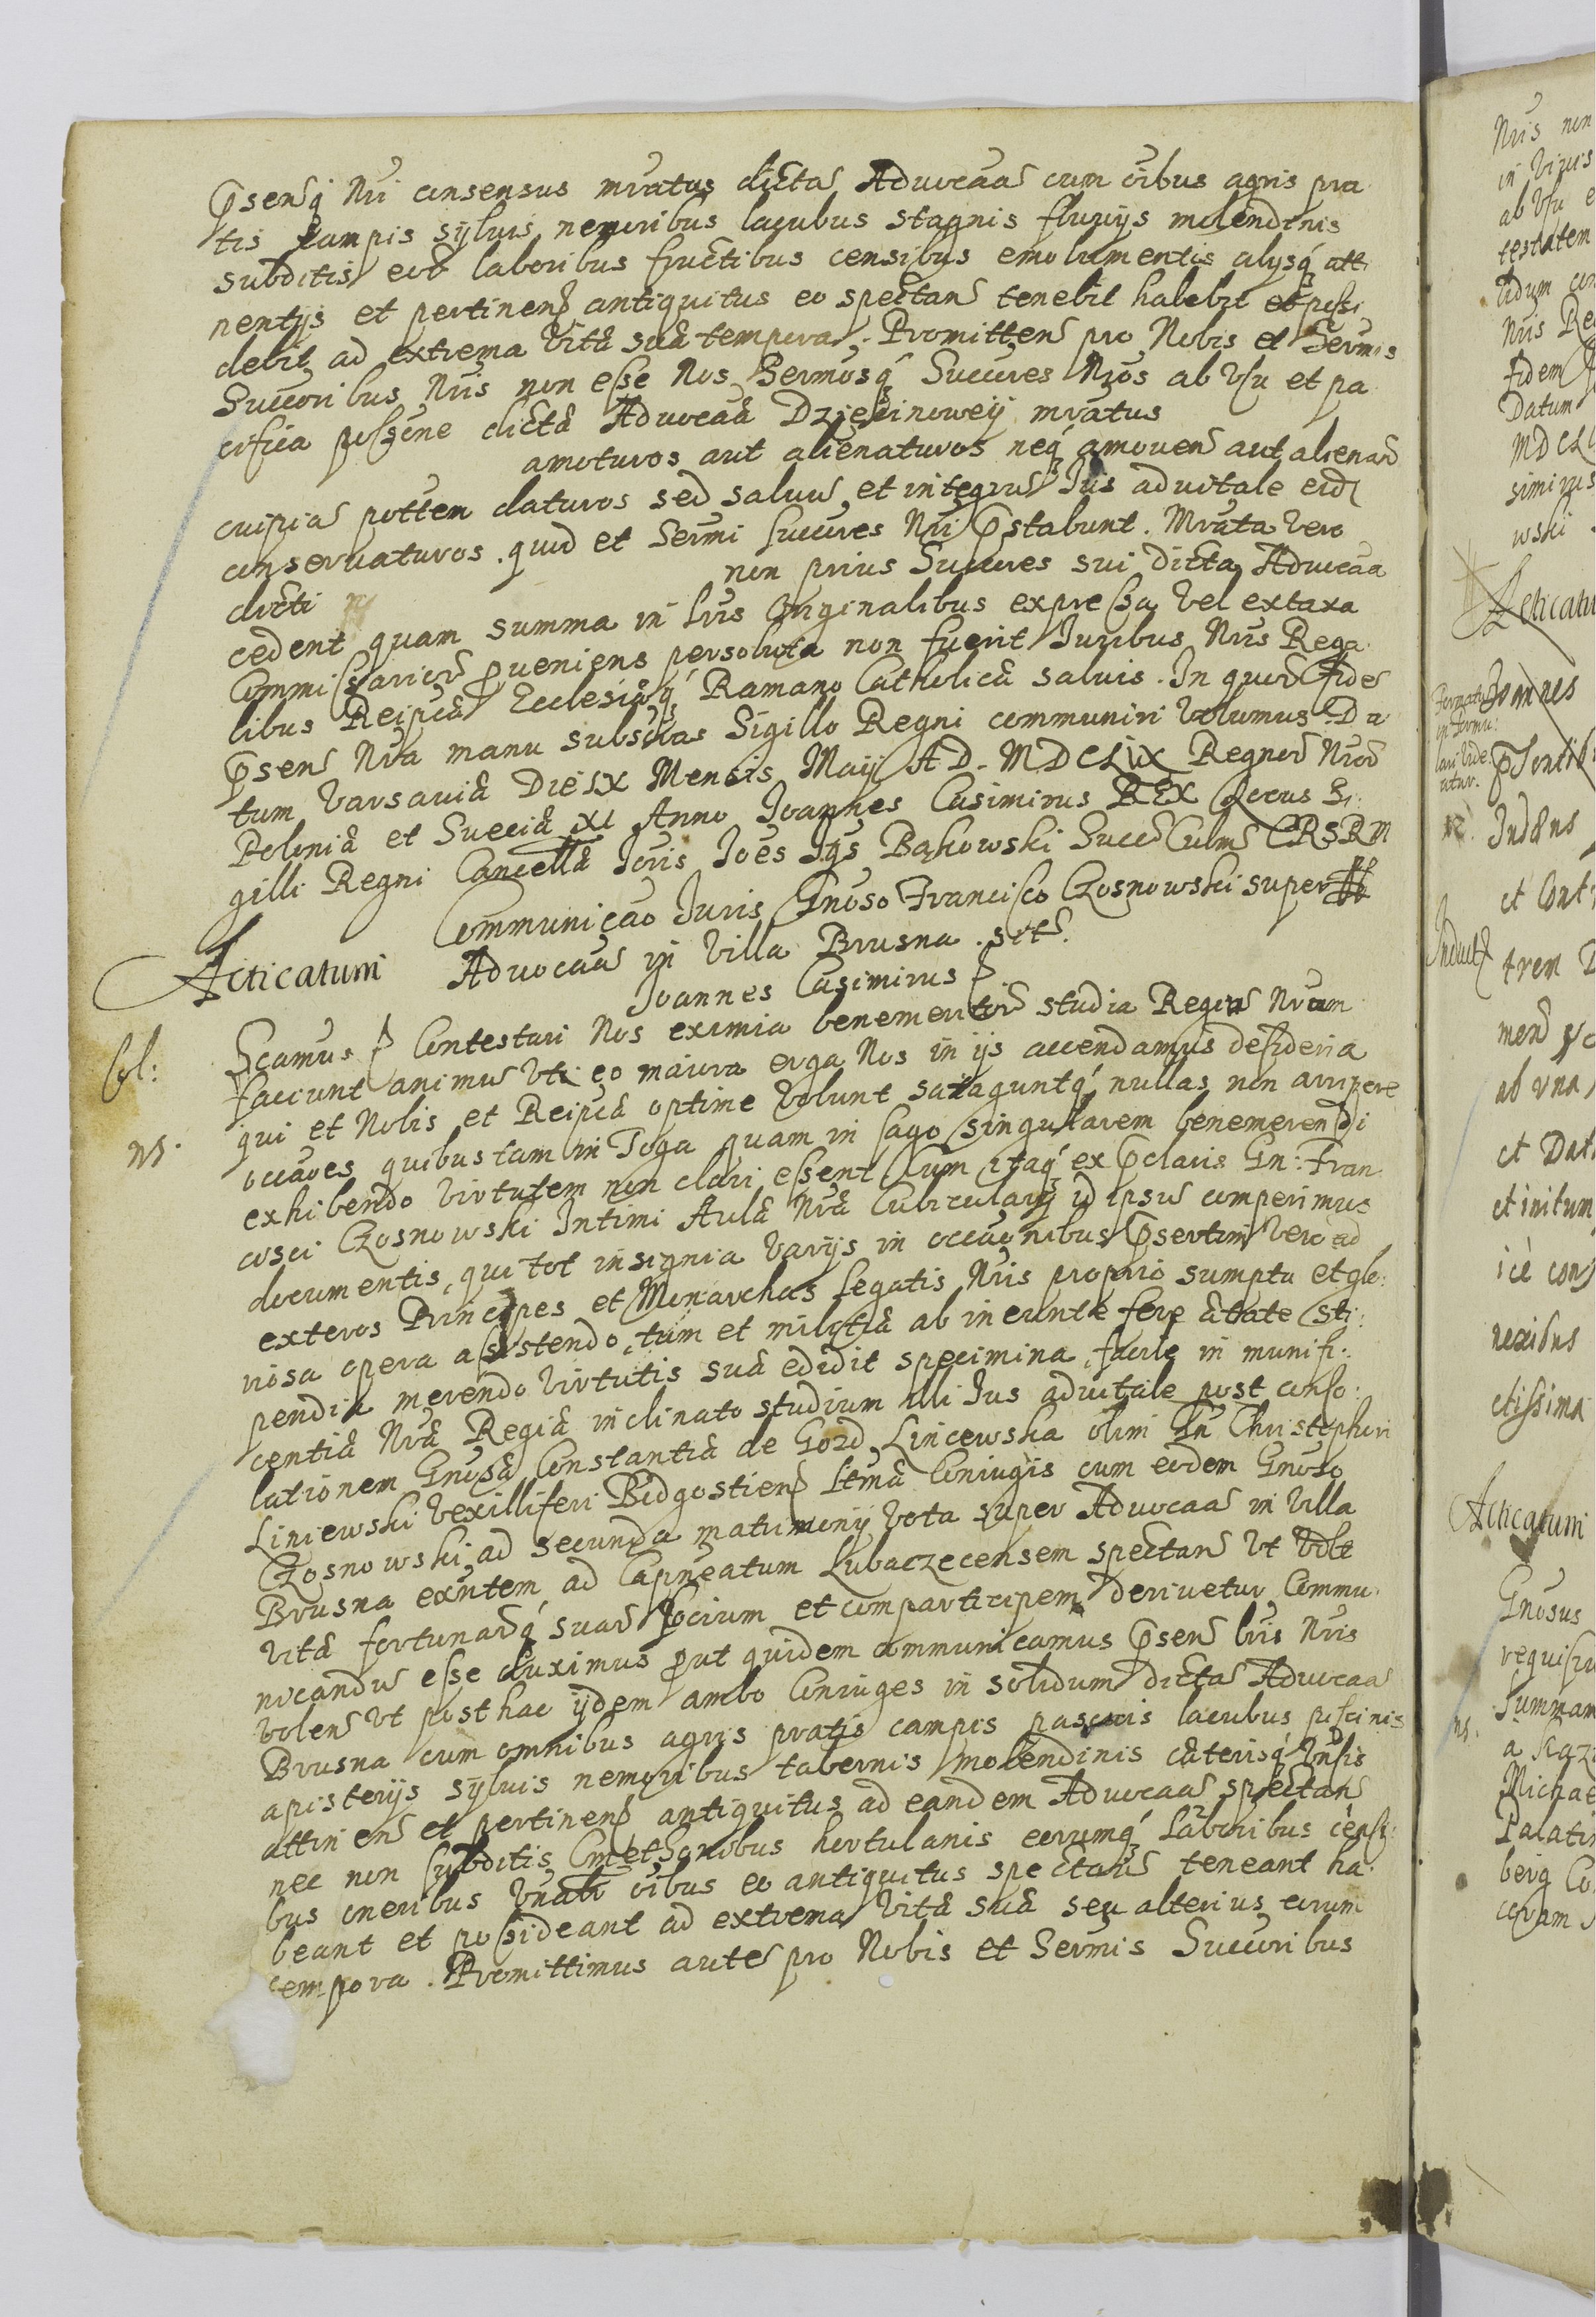 Psensq Nri consensus mratus dictã Advocaã cum oibus agris pra
tis campis sylvis nemoribus lacubus stagnis fluvijs molendinis
subditis eorũ laboribus fructibus censibus emolumentis alijsq́ atti
nentijs et pertinens antiquitus eo spectan tenebit habebit et possi
debit ad extrema vitæ suæ tempora. Promitten pro Nobis et Sermis
Succoribus Nris non esse Nos Sermosq́ Succres Nros ab Vsu et pa
cifica possne dictæ Advocaæ Dziekinoweÿ mratus
amoturos aut alienaturos neq́ amoven aut alienan
cuipiã pottem daturos sed saluũ et integrũ Jus aduitale eid
conservaturos. quod et Sermi Succres Nri Pstabunt. Mrata Vero
dicti non prius Succres sui dicta Advocaa
cedent quam summa in Lris Originalibus expressa vel ex taxa
Commissarior proveniens persoluta non fuerit Juribus Nris Rega
libus Reipcæ Ecclesiæq́ Ramano Catholicæ saluis. In quor fidẽ
Psen Nra manu subscrias Sigillo Regni communiri Volumus. Da
tum Varsaviæ Die IX Mensis Maij AD. MDCLIX Regnor Nror
Poloniæ et Sueciæ XI Anno Joannes Casimirus REX Locus Si:
gilli Regni Cancella Joris Joes Igs Bąkowski Succ Culm CRSRM
Communicao Juris Gnoso Francisco Czosnowski super
Acticatum Advocaã in Villa Brusna sit.
Joannes Casimirus
Col: Scamus Contestari Nos eximia benemeritor studia Regiũ Nrum
faciunt animũ Vti eo maiora erga Nos in ijs accendamus desideria
ns. qui et Nobis et Reipcæ optime Volunt sataguntq́ nullas non arripere
occaoes quibus tam in Toga quam in sago singularem benemerendi
exhibendo Virtutem non clari essent. Cum itaq́ ex Pclaris Gn: Fran
cisci Czosnowski Intimi Aulæ Nræ Cubicularij id ipsũ comperimus
documentis, qui tot insignia Varijs in occaonibus Psertim Vero ad
exteros Principes et Monarchas Legatis Nris proprio sumptu et glo:
riosa opera assistendo, tum et militiæ ab ineunte fere ætate sti:
pendia merendo Virtutis suæ edidit specimina, facile in munifi:
centiæ Nræ Regiæ inclinato studium illi Jus aduitale post conso:
lationem Gnosæ Constantiæ de Gord Lincewska olim Gn Christophori
Liniewski Vexilliferi Bidgostiens Ltmæ Coniugis cum eodem Gnoso
Czosnowski ad secunda matrimonij Vota super Advocaã in Villa
Brusna exntem ad Capneatum Lubaczecensem spectan Vt Vdlt
Vitæ fortunarq́ suar Socium et comparticipem derivetur Commu
nicandũ esse duximus prout quidem communicamus Psen lris Nris
Volen Vt post hac ijdem ambo Coniuges in solidum dictã Advocaã
Brusna cum omnibus agris pratis campis pascuis lacubus piscinis
apisterijs sylvis nemoribus tabernis molendinis cæterisq́ Vnsis
attinen et pertinens antiquitus ad eandem Advocaã spectan
nec non subditis Cmethonibus hortulanis eorumq́ Laboribus censi
bus oneribus oibus eo antiquitus spectan teneant ha
beant et possideant ad extrema Vitæ suæ seu alterius eorum
tempora. Promittimus autẽ pro Nobis et Sermis Succoribus
Nris non
in Vivis
ab Vsu e
testatem
Nris Reg
fidem
Datum
MDCL
simirus
wski
Acticatum
Joannes
Psentib
Judæus
et Cont
Induct
trem
men
ab una
et Dat
et initum
icè cons
nexibus
ctissima
Acticatum
Gnosus
requisiv
ns. Summam
a Kazi
Michae
Palatin
berg Co
coram